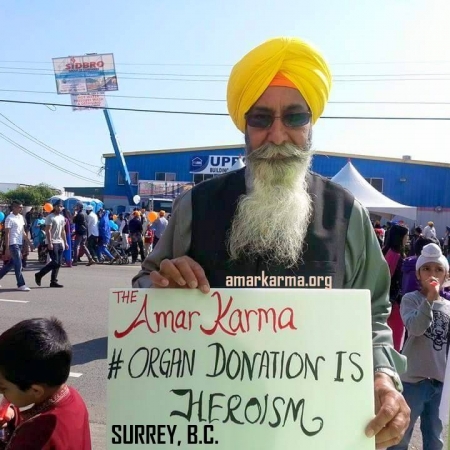 SIDBRO
UPPE
BUILDING
amarkarma.org
THE Amar Karma
# ORGAN DONATION IS
HEROISM
SURREY, B.C.